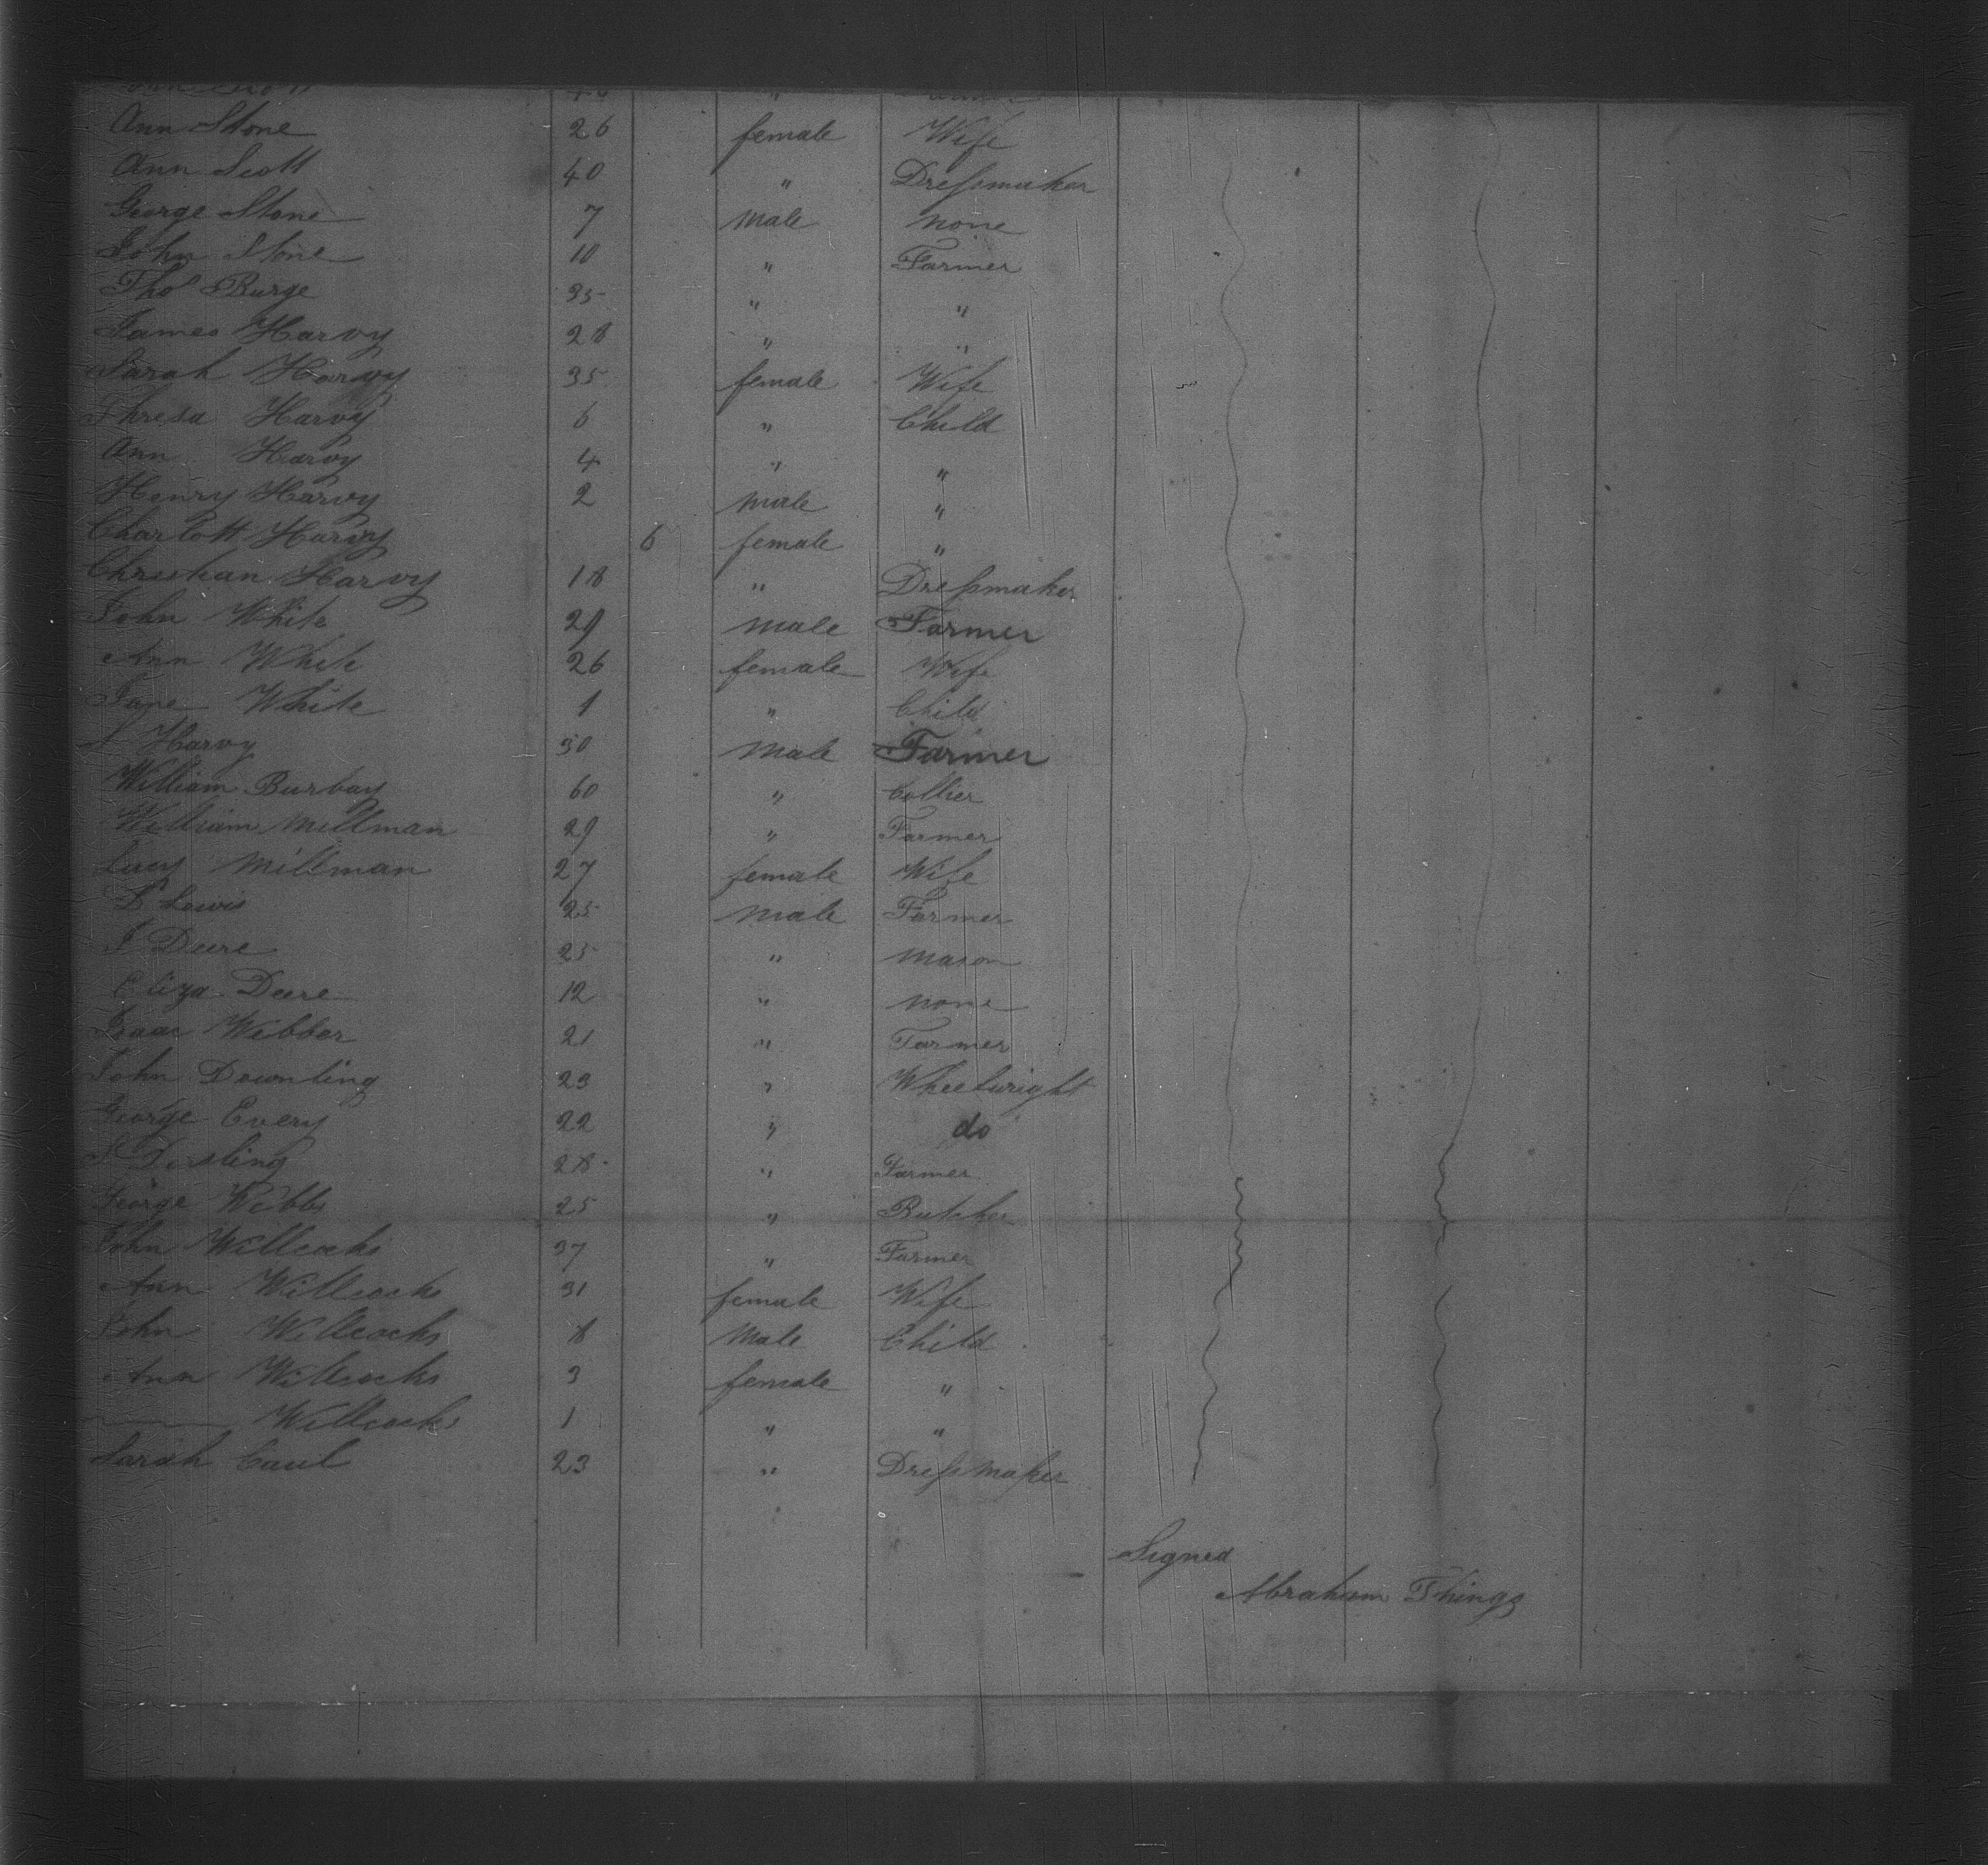 Ann Stone 26 female Wife
Ann Scott 40 " Dressmaker
George Stone 7 male none
John Stone 10 " Farmer
Thos Burge 35 " "
James Harvy 28 " "
Sarah Harvy 35 female Wife
Thresa Harvy 6 " Child
Ann Harvy 4 " "
Henry Harvy 2 male "
Charlott Harvy 6 female "
Christian Harvy 18 " Dressmaker
John White 29 male Farmer
Ann White 26 female Wife
Jane White 1 " Child
S Harvy 30 male Farmer
William Burbay 60 " Collier
William Millman 29 " Farmer
Lucy Millman 27 female Wife
Lewis 25 male Farmer
J Deere 25 " mason
Eliza Deere 12 " none
Isaac Webber 21 " Farmer
John Downling 23 " Wheelwright
George Every 22 " do
28 " Farmer
George Webbs 25 " Butcher
John Willcocks 37 " Farmer
Ann Willcocks 31 female Wife
John Willcocks 8 male Child
Ann Willcocks 3 female "
—— Willcocks 1 " "
Sarah Caul 23 " Dressmaker
Signed
Abraham Things